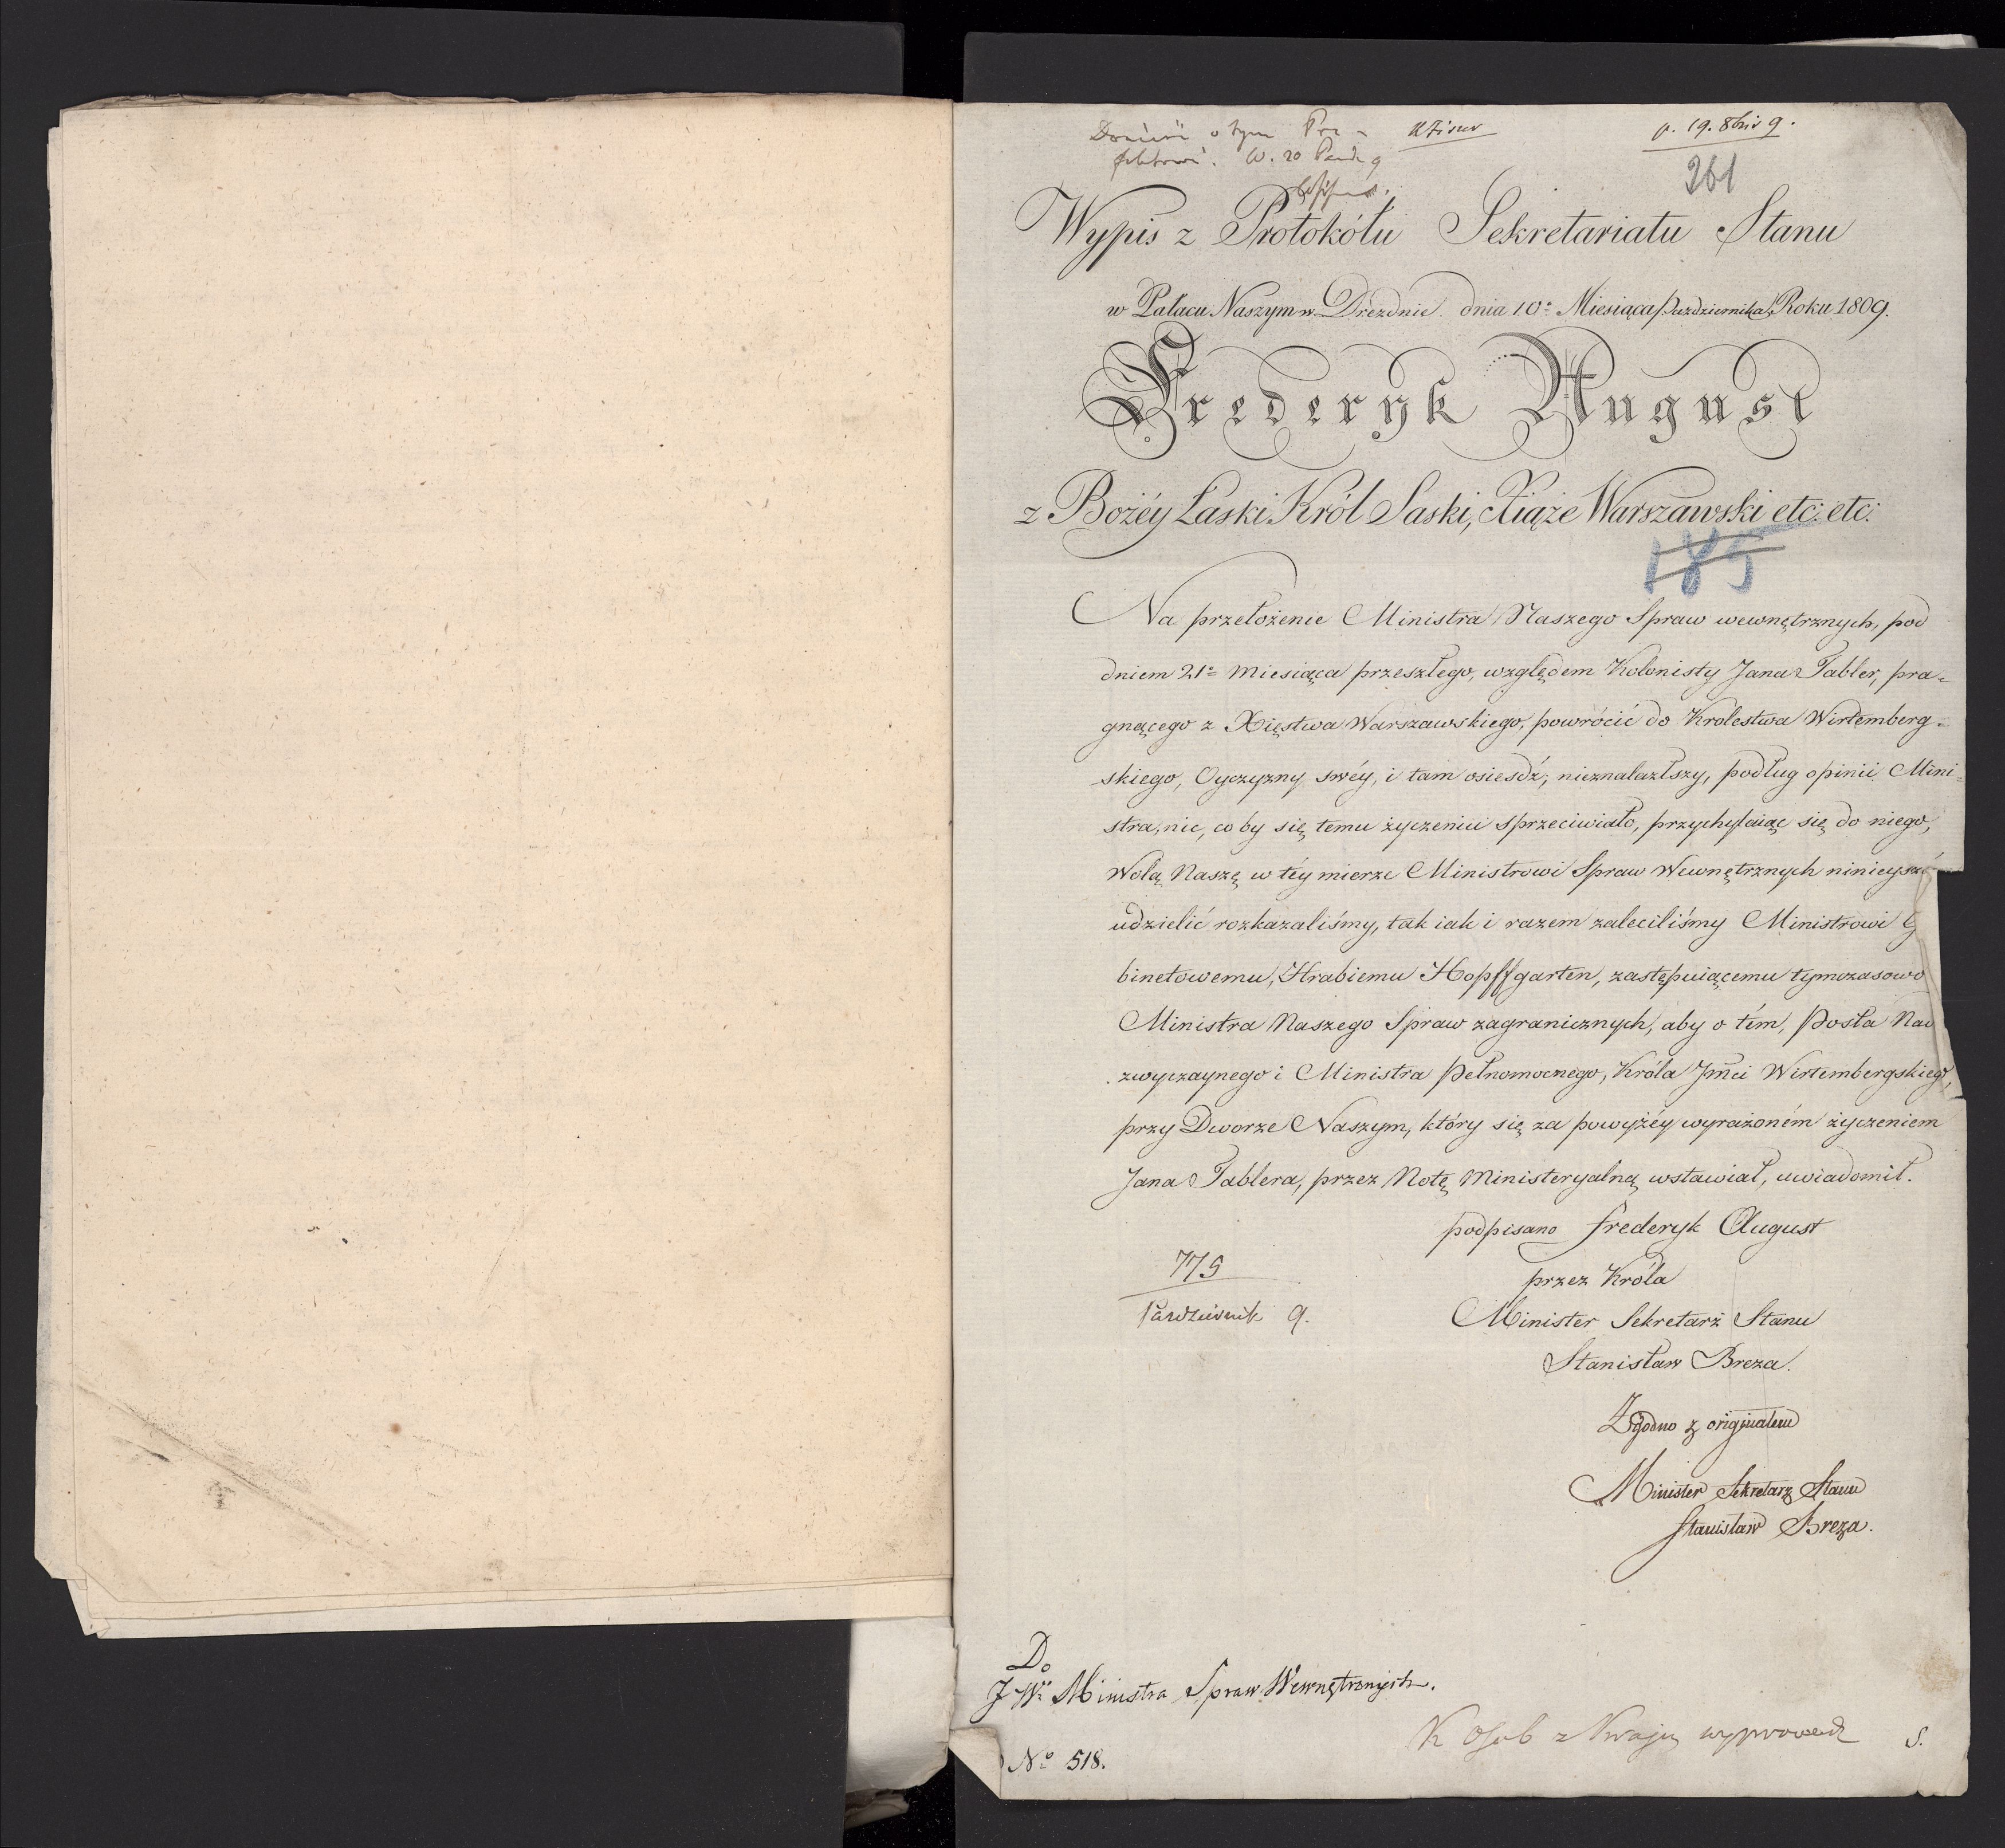 p. 19. 8bris 9.
261
Wypis z Protokółu Sekretariatu Stanu
w Pałacu Naszym w Dreznie dnia 10º Miesiąca Pazdziernika Roku 1809.
Frederyk August
z Bożéy Łaski Król Saski, Xiąże Warszawski etc: etc:
185
Na przełożenie Ministra Naszego Spraw wewnętrznych, pod
dniem 21º miesiąca przeszłego, względem Kolonisty Jana Tabler, pra-
gnącego z Xięstwa Warszawskiego, powrócić do Krolestwa Wirtemberg-
skiego, Oyczyzny swéy, i tam osiesdź, nieznalazłszy, podług opinii Mini-
stra, nic, co by się temu życzeniu sprzeciwiało, przychylaiąc się do niego,
Wolą Naszę w téy mierze Ministrowi Spraw Wewnętrznych
udzielić rozkazaliśmy, tak iak i razem zaleciliśmy Ministrowi
binetowemu, Hrabiemu Hopffgarten, zastępuiącemu tymczasowo
Ministra Naszego Spraw zagranicznych, aby o tém, Posła Nad
zwyczaynego i Ministra Pełnomocnego, Króla Jmci Wirtembergskiego,
przy Dworze Naszym, który się za powyżéy wyrażoném życzeniem
Jana Tablera, przez Notę Ministeryalną wstawiał, uwiadomił.
podpisano Frederyk August
775
przez Króla
Pazdziernik 9.
Minister Sekretarz Stanu
Stanisław Breza.
Zgodno z originałem
Minister Sekretarz Stanu
Stanisław Breza.
Do
JWº Ministra Spraw Wewnętrznych.
K Osob z Kraju wyprowadz S.
Nº 518.